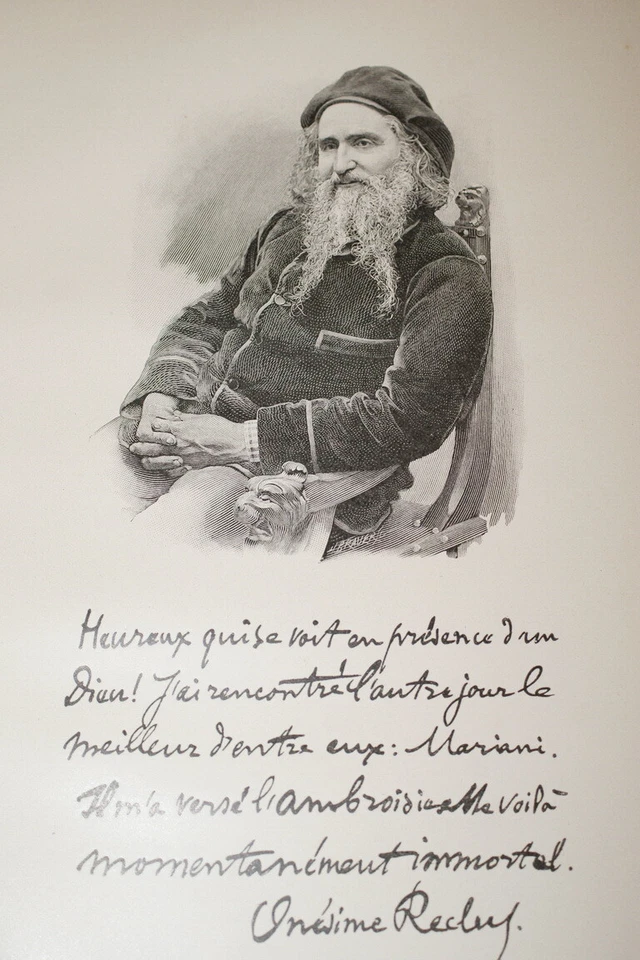 H. BRAUER
Heureux qui se voit en présence d'un
Dieu! J'ai rencontré l'autre jour le
meilleur d'entre eux: Mariani.
Il m'a versé l'ambroisie et Me voilà
momentanément immortel.
Onésime Reclus.